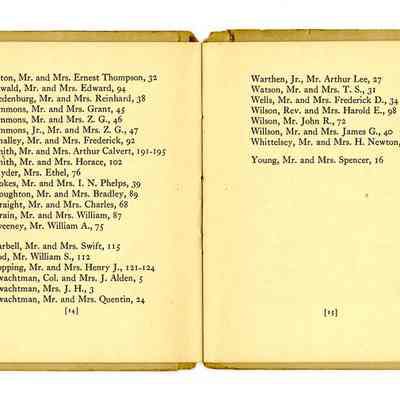 ton, Mr. and Mrs. Ernest Thompson, 32
wald, Mr. and Mrs. Edward, 94
edenburg, Mr. and Mrs. Reinhard, 38
mmons, Mr. and Mrs. Grant, 45
mmons, Mr. and Mrs. Z. G., 46
mmons, Jr., Mr. and Mrs. Z. G., 47
nalley, Mr. and Mrs. Frederick, 92
nith, Mr. and Mrs. Arthur Calvert, 191-195
nith, Mr. and Mrs. Horace, 102
yder, Mrs. Ethel, 76
okes, Mr. and Mrs. I. N. Phelps, 39
oughton, Mr. and Mrs. Bradley, 89
raight, Mr. and Mrs. Charles, 68
rain, Mr. and Mrs. William, 87
veeney, Mr. William A., 75
arbell, Mr. and Mrs. Swift, 115
od, Mr. William S., 112
opping, Mr. and Mrs. Henry J., 121-124
wachtman, Col. and Mrs. J. Alden, 5
wachtman, Mrs. J. H., 3
wachtman, Mr. and Mrs. Quentin, 24
[14]
Warthen, Jr., Mr. Arthur Lee, 27
Watson, Mr. and Mrs. T. S., 31
Wells, Mr. and Mrs. Frederick D., 34
Wilson, Rev. and Mrs. Harold E., 98
Wilson, Mr. John R., 72
Willson, Mr. and Mrs. James G., 40
Whittelsey, Mr. and Mrs. H. Newton,
Young, Mr. and Mrs. Spencer, 16
[15]